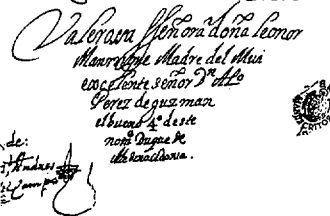 Valerosa Señora doña Leonor
Manrrique Madre del Mui
excelente señor Dn Alo
Perez de guzman
el bueno 4º deste
nomẽ Duque de
Medinasidonia.
de:
Andres
Campo